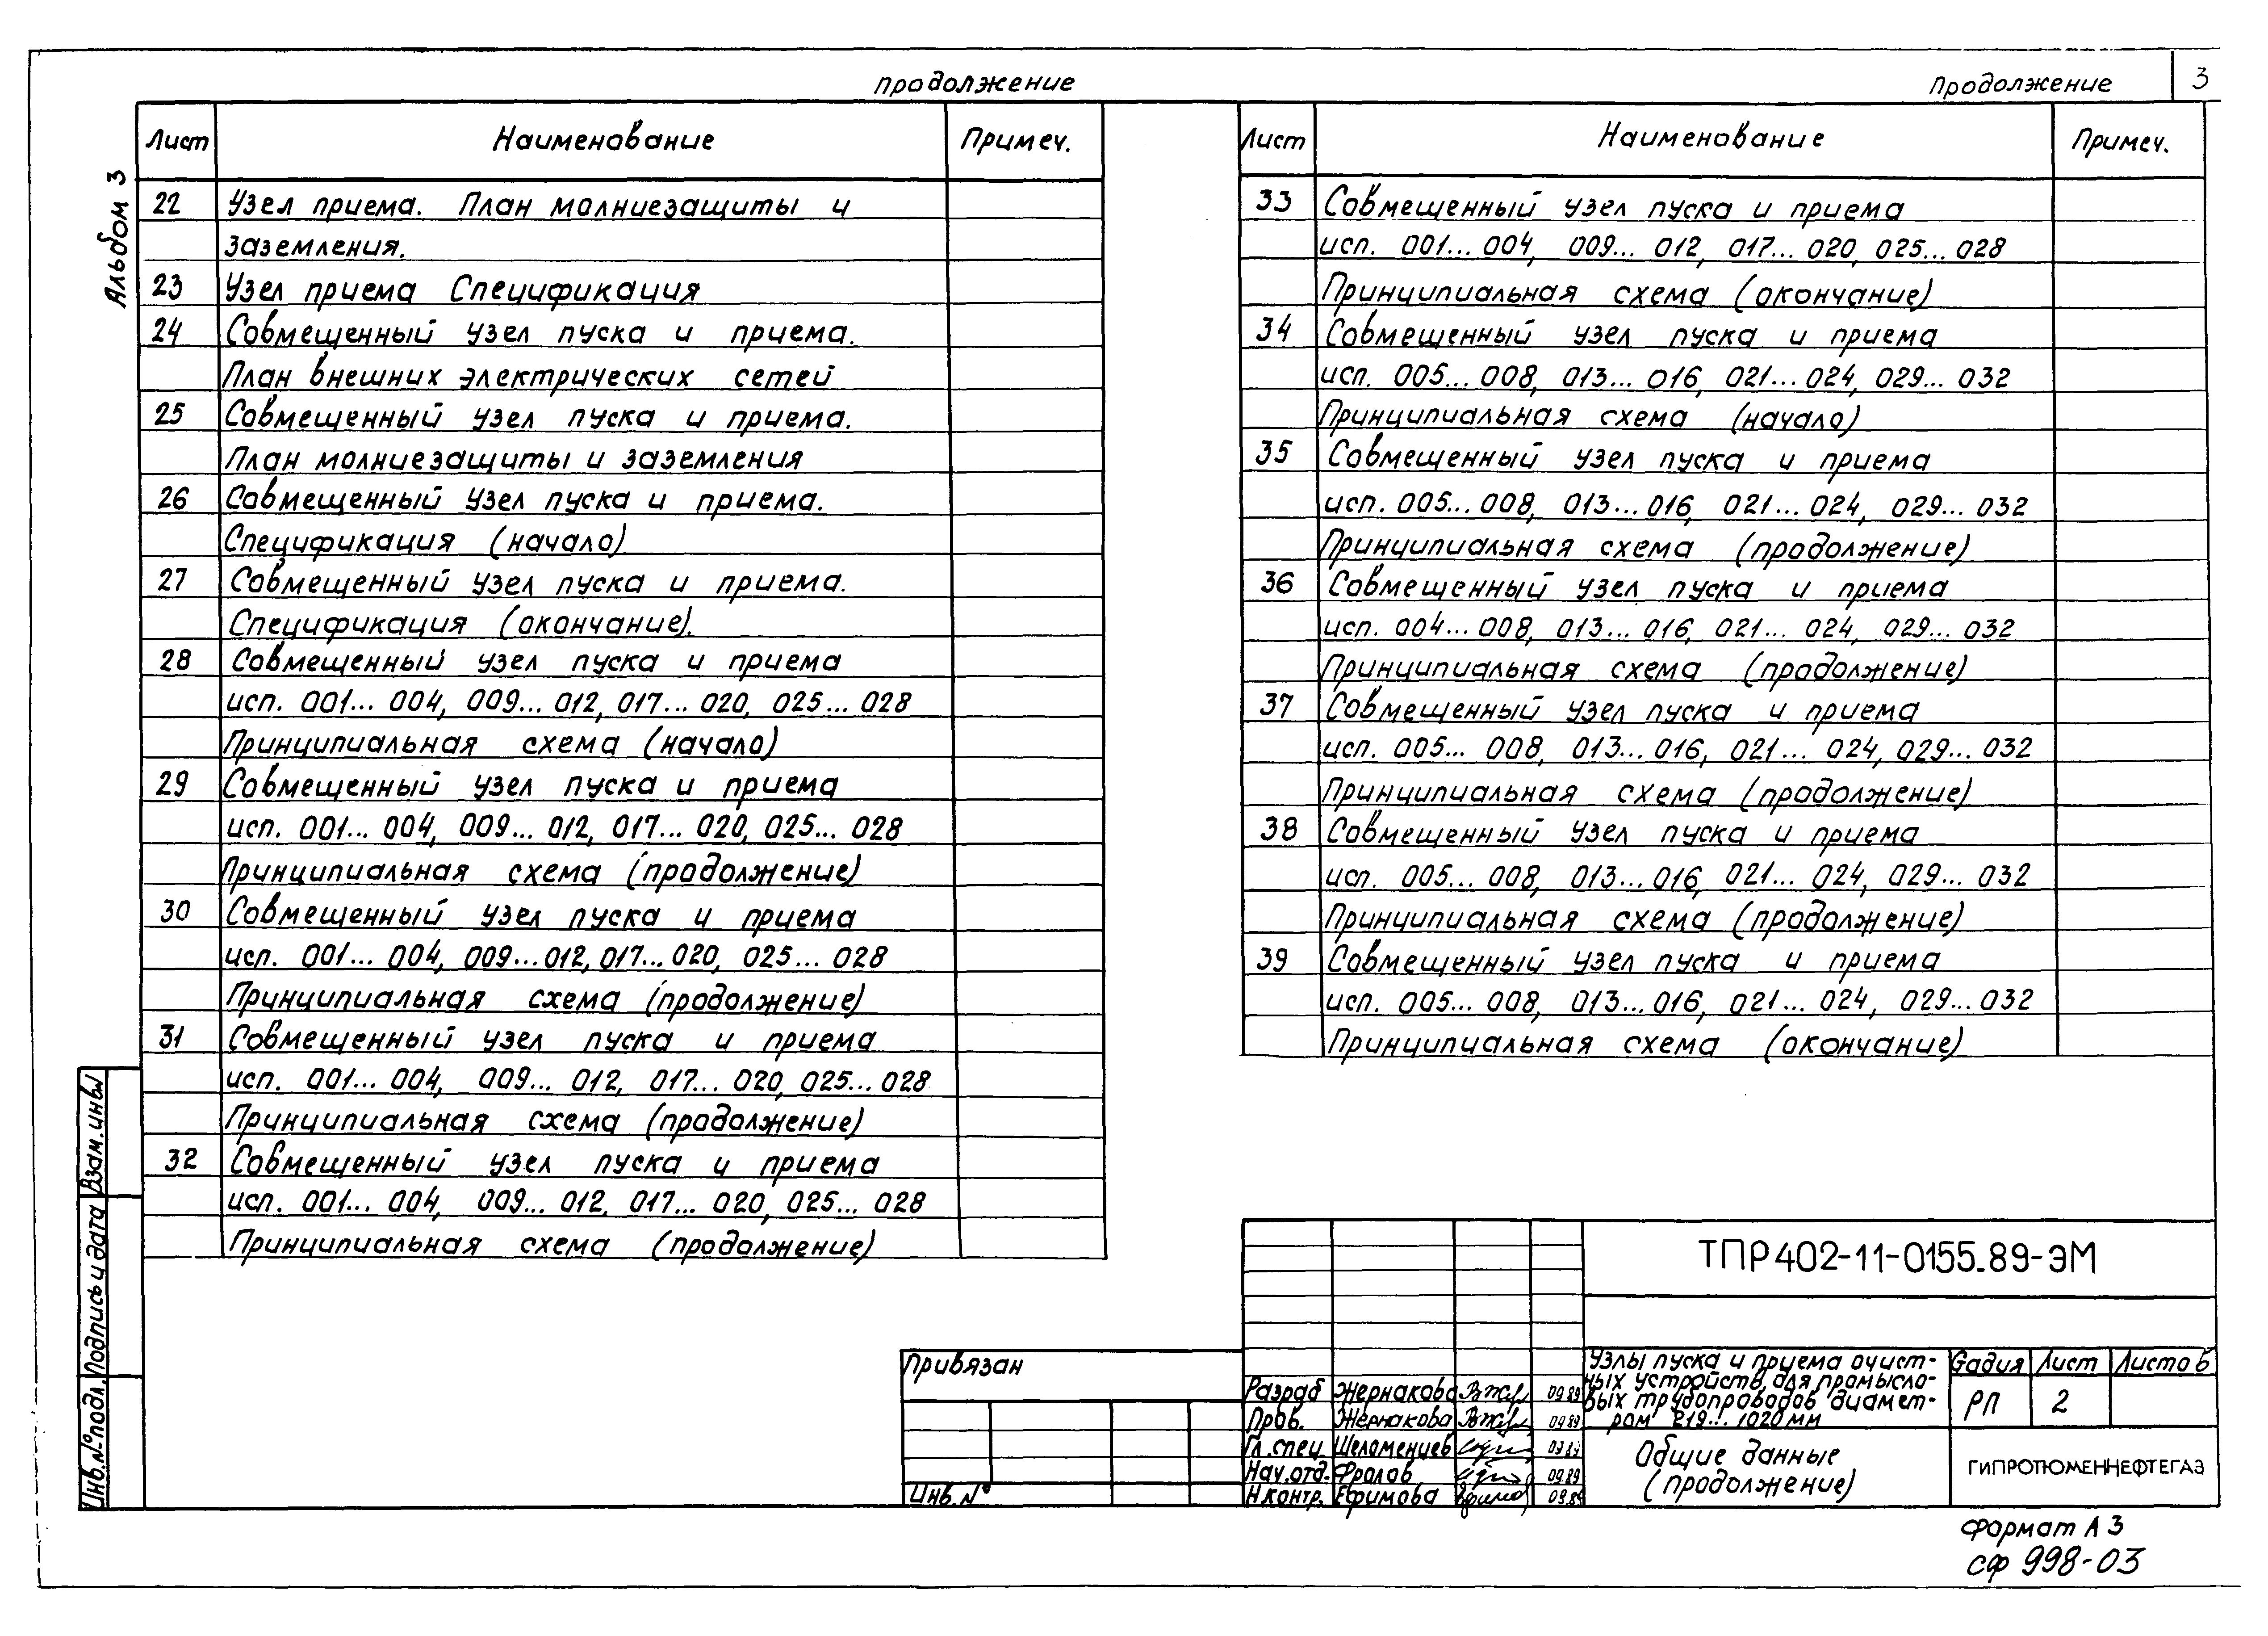 продолжение
Продолжение
3
Альбом 3
Лист Наименование Примеч.
22 Узел приема. План молниезащиты и
заземления.
23 Узел приема Спецификация
24 Совмещенный узел пуска и приема.
План внешних электрических сетей
25 Совмещенный узел пуска и приема.
План молниезащиты и заземления
26 Совмещенный узел пуска и приема.
Спецификация (начало)
27 Совмещенный узел пуска и приема.
Спецификация (окончание).
28 Совмещенный узел пуска и приема
исп. 001... 004, 009... 012, 017... 020, 025... 028
Принципиальная схема (начало)
29 Совмещенный узел пуска и приема
исп. 001... 004, 009... 012, 017... 020, 025... 028
Принципиальная схема (продолжение)
30 Совмещенный узел пуска и приема
исп. 001... 004, 009... 012, 017... 020, 025... 028
Принципиальная схема (продолжение)
31 Совмещенный узел пуска и приема
исп. 001... 004, 009... 012, 017... 020, 025... 028
Принципиальная схема (продолжение)
32 Совмещенный узел пуска и приема
исп. 001... 004, 009... 012, 017... 020, 025... 028
Принципиальная схема (продолжение)
Лист Наименование Примеч.
33 Совмещенный узел пуска и приема
исп. 001... 004, 009... 012, 017... 020, 025... 028
Принципиальная схема (окончание)
34 Совмещенный узел пуска и приема
исп. 005... 008, 013... 016, 021... 024, 029... 032
Принципиальная схема (начало)
35 Совмещенный узел пуска и приема
исп. 005... 008, 013... 016, 021... 024, 029... 032
Принципиальная схема (продолжение)
36 Совмещенный узел пуска и приема
исп. 004... 008, 013... 016, 021... 024, 029... 032
Принципиальная схема (продолжение)
37 Совмещенный узел пуска и приема
исп. 005... 008, 013... 016, 021... 024, 029... 032
Принципиальная схема (продолжение)
38 Совмещенный узел пуска и приема
исп. 005... 008, 013... 016, 021... 024, 029... 032
Принципиальная схема (продолжение)
39 Совмещенный узел пуска и приема
исп. 005... 008, 013... 016, 021... 024, 029... 032
Принципиальная схема (окончание)
Взам.инв№
Подпись и дата
Инв.№подл.
Привязан
Инв.№
ТПР402-11-0155.89-ЭМ
Разраб Жернакова 09.89
Пров. Жернакова 09.89
Гл.спец Шеломенцев
Нач.отд. Фролов 09.89
Н.контр. Ефимова 09.89
Узлы пуска и приема очист-
ных устройств для промысло-
вых трубопроводов диамет-
ром 219... 1020 мм
Стадия Лист Листов
РП 2
Общие данные
(продолжение)
ГИПРОТЮМЕННЕФТЕГАЗ
Формат А3
сф 998-03